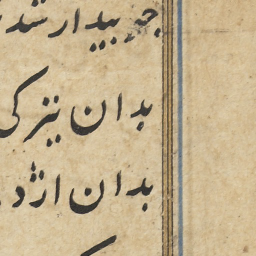 چو بیدار شد
بدان نیز کی
بدان اژد